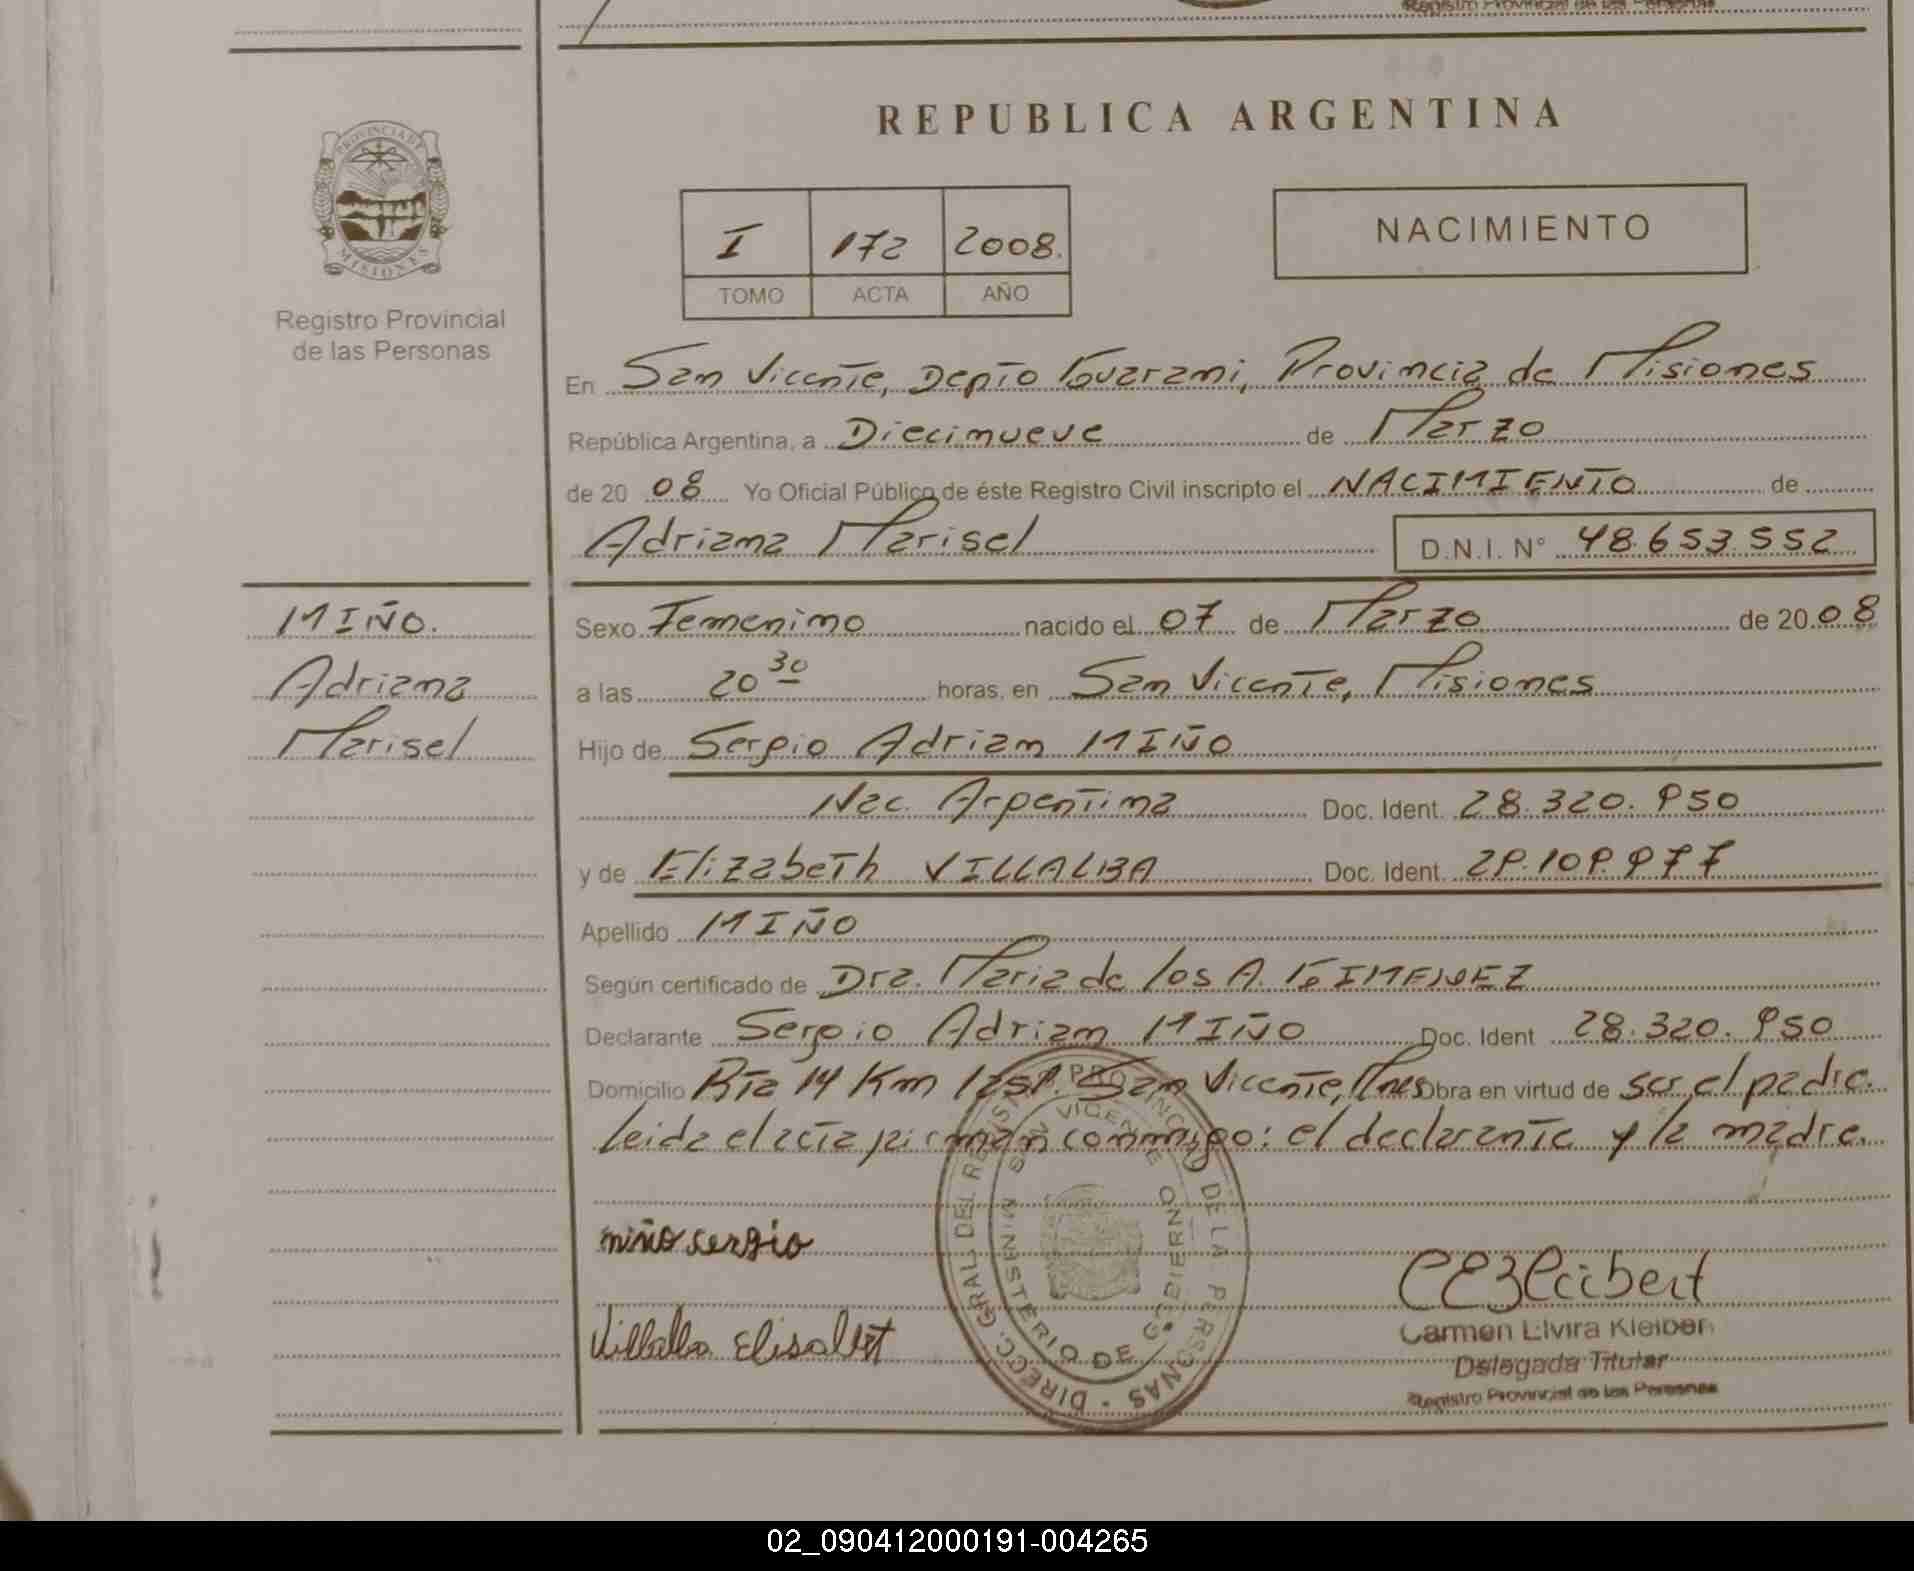 Registro Provincial de las Personas
PROVINCIA DE
MISIONES
Registro Provincial
de las Personas
REPUBLICA ARGENTINA
I 172 2008.
TOMO ACTA AÑO
NACIMIENTO
En San Vicente, Depto Guarani, Provincia de Misiones
República Argentina, a Diecinueve de Marzo
de 20 08 Yo Oficial Público de éste Registro Civil inscripto el NACIMIENTO de
Adriana Marisel D.N.I. N° 48.653.552
MIÑO.
Adriana
Marisel
Sexo Femenino nacido el 07 de Marzo de 20 08
a las 20 30 horas, en San Vicente, Misiones
Hijo de Sergio Adrian MIÑO
Nac. Argentina Doc. Ident. 28.320.950
y de Elizabeth VILLALBA Doc. Ident. 29.109.977
Apellido MIÑO
Según certificado de Dra. Maria de los A. GIMENEZ
Declarante Sergio Adrian MIÑO Doc. Ident 28.320.950
Domicilio Rta 14 Km San Vicente, Mnes Obra en virtud de ser el padre.
leida el acta firman conmigo: el declarante y la madre.
miño sergio
Villalba Elisabet
DIRECC. GRAL. DEL REGISTRO PROVINCIAL DE LA PERSONAS
SAN VICENTE
MINISTERIO DE GOBIERNO
CEKleibert
Carmen Elvira Kleiber
Delegada Titular
Registro Provincial de las Personas
02_090412000191-004265